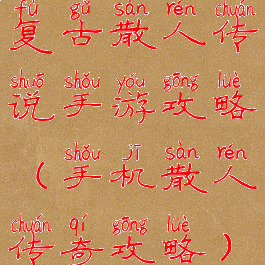 fù gǔ sàn rén chuán
复古散人传
shuō shǒu yóu gōng lüè
说手游攻略
shǒu jī sàn rén
（手机散人
chuán qí gōng lüè
传奇攻略）